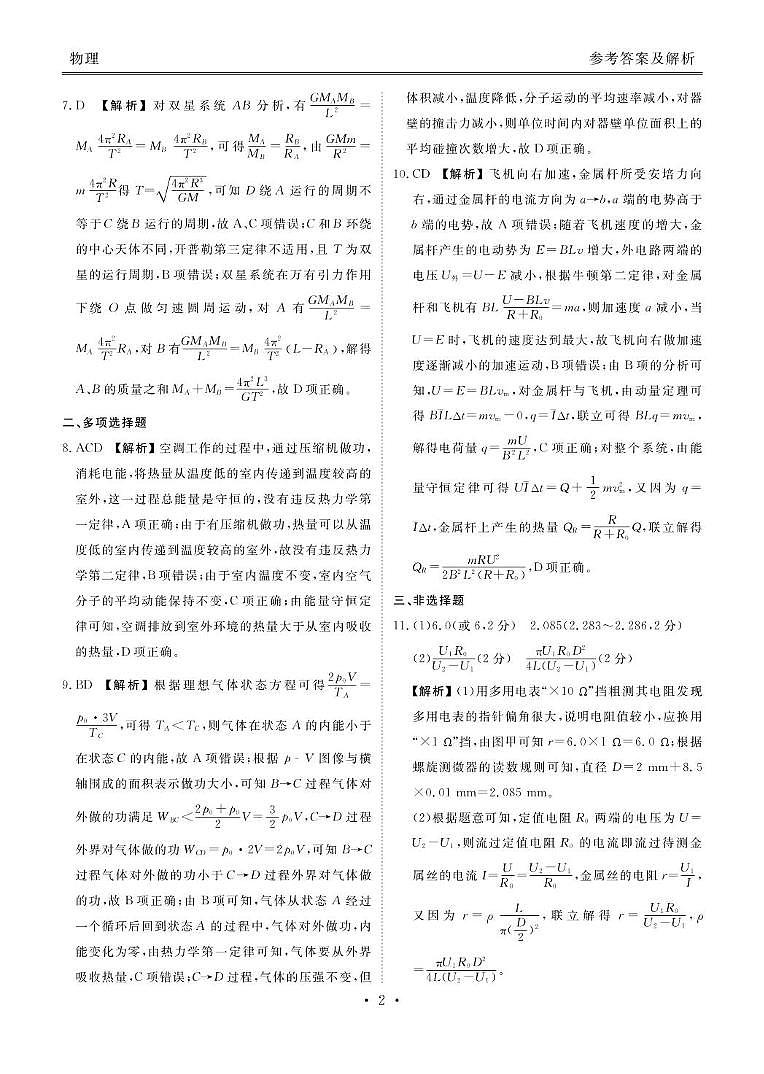 物理
参考答案及解析
7. D 【解析】对双星系统 AB 分析,有 \frac{GM_AM_B}{L^2} =
M_A \frac{4π^2R_A}{T^2} = M_B \frac{4π^2R_B}{T^2},可得 \frac{M_A}{M_B} = \frac{R_B}{R_A},由 \frac{GMm}{R^2} =
m \frac{4π^2R}{T^2} 得 T = \sqrt{\frac{4π^2R^3}{GM}},可知 D 绕 A 运行的周期不
等于 C 绕 B 运行的周期,故 A、C 项错误;C 和 B 环绕
的中心天体不同,开普勒第三定律不适用,且 T 为双
星的运行周期,B 项错误;双星系统在万有引力作用
下绕 O 点做匀速圆周运动,对 A 有 \frac{GM_AM_B}{L^2} =
M_A \frac{4π^2}{T^2} R_A,对 B 有 \frac{GM_AM_B}{L^2} = M_B \frac{4π^2}{T^2} (L-R_A),解得
A、B 的质量之和 M_A+M_B = \frac{4π^2L^3}{GT^2},故 D 项正确。
二、多项选择题
8. ACD 【解析】空调工作的过程中,通过压缩机做功,
消耗电能,将热量从温度低的室内传递到温度较高的
室外,这一过程总能量是守恒的,没有违反热力学第
一定律,A 项正确;由于有压缩机做功,热量可以从温
度低的室内传递到温度较高的室外,故没有违反热力
学第二定律,B 项错误;由于室内温度不变,室内空气
分子的平均动能保持不变,C 项正确;由能量守恒定
律可知,空调排放到室外环境的热量大于从室内吸收
的热量,D 项正确。
9. BD 【解析】根据理想气体状态方程可得 \frac{2p_0V}{T_A} =
\frac{p_0·3V}{T_C},可得 T_A<T_C,则气体在状态 A 的内能小于
在状态 C 的内能,故 A 项错误;根据 p-V 图像与横
轴围成的面积表示做功大小,可知 B→C 过程气体对
外做的功满足 W_{BC}<\frac{2p_0+p_0}{2}V=\frac{3}{2}p_0V,C→D 过程
外界对气体做的功 W_{CD}=p_0·2V=2p_0V,可知 B→C
过程气体对外做的功小于 C→D 过程外界对气体做
的功,故 B 项正确;由 B 项可知,气体从状态 A 经过
一个循环后回到状态 A 的过程中,气体对外做功,内
能变化为零,由热力学第一定律可知,气体要从外界
吸收热量,C 项错误;C→D 过程,气体的压强不变,但
体积减小,温度降低,分子运动的平均速率减小,对器
壁的撞击力减小,则单位时间内对器壁单位面积上的
平均碰撞次数增大,故 D 项正确。
10. CD 【解析】飞机向右加速,金属杆所受安培力向
右,通过金属杆的电流方向为 a→b,a 端的电势高于
b 端的电势,故 A 项错误;随着飞机速度的增大,金
属杆产生的电动势为 E=BLv 增大,外电路两端的
电压 U_外=U-E 减小,根据牛顿第二定律,对金属
杆和飞机有 BL\frac{U-BLv}{R+R_0}=ma,则加速度 a 减小,当
U=E 时,飞机的速度达到最大,故飞机向右做加速
度逐渐减小的加速运动,B 项错误;由 B 项的分析可
知,U=E=BLv_m,对金属杆与飞机,由动量定理可
得 B\bar{I}LΔt=mv_m-0,q=\bar{I}Δt,联立可得 BLq=mv_m,
解得电荷量 q=\frac{mU}{B^2L^2},C 项正确;对整个系统,由能
量守恒定律可得 U\bar{I}Δt=Q+\frac{1}{2}mv_m^2,又因为 q=
\bar{I}Δt,金属杆上产生的热量 Q_R=\frac{R}{R+R_0}Q,联立解得
Q_R=\frac{mRU^2}{2B^2L^2(R+R_0)},D 项正确。
三、非选择题
11. (1)6.0(或 6,2 分) 2.085(2.283~2.286,2 分)
(2)\frac{U_1R_0}{U_2-U_1}(2 分) \frac{πU_1R_0D^2}{4L(U_2-U_1)}(2 分)
【解析】(1)用多用电表“×10 Ω”挡粗测其电阻发现
多用电表的指针偏角很大,说明电阻值较小,应换用
“×1 Ω”挡,由图甲可知 r=6.0×1 Ω=6.0 Ω;根据
螺旋测微器的读数规则可知,直径 D=2 mm+8.5
×0.01 mm=2.085 mm。
(2)根据题意可知,定值电阻 R_0 两端的电压为 U=
U_2-U_1,则流过定值电阻 R_0 的电流即流过待测金
属丝的电流 I=\frac{U}{R_0}=\frac{U_2-U_1}{R_0},金属丝的电阻 r=\frac{U_1}{I},
又因为 r=ρ\frac{L}{π(\frac{D}{2})^2},联立解得 r=\frac{U_1R_0}{U_2-U_1},ρ
=\frac{πU_1R_0D^2}{4L(U_2-U_1)}。
· 2 ·